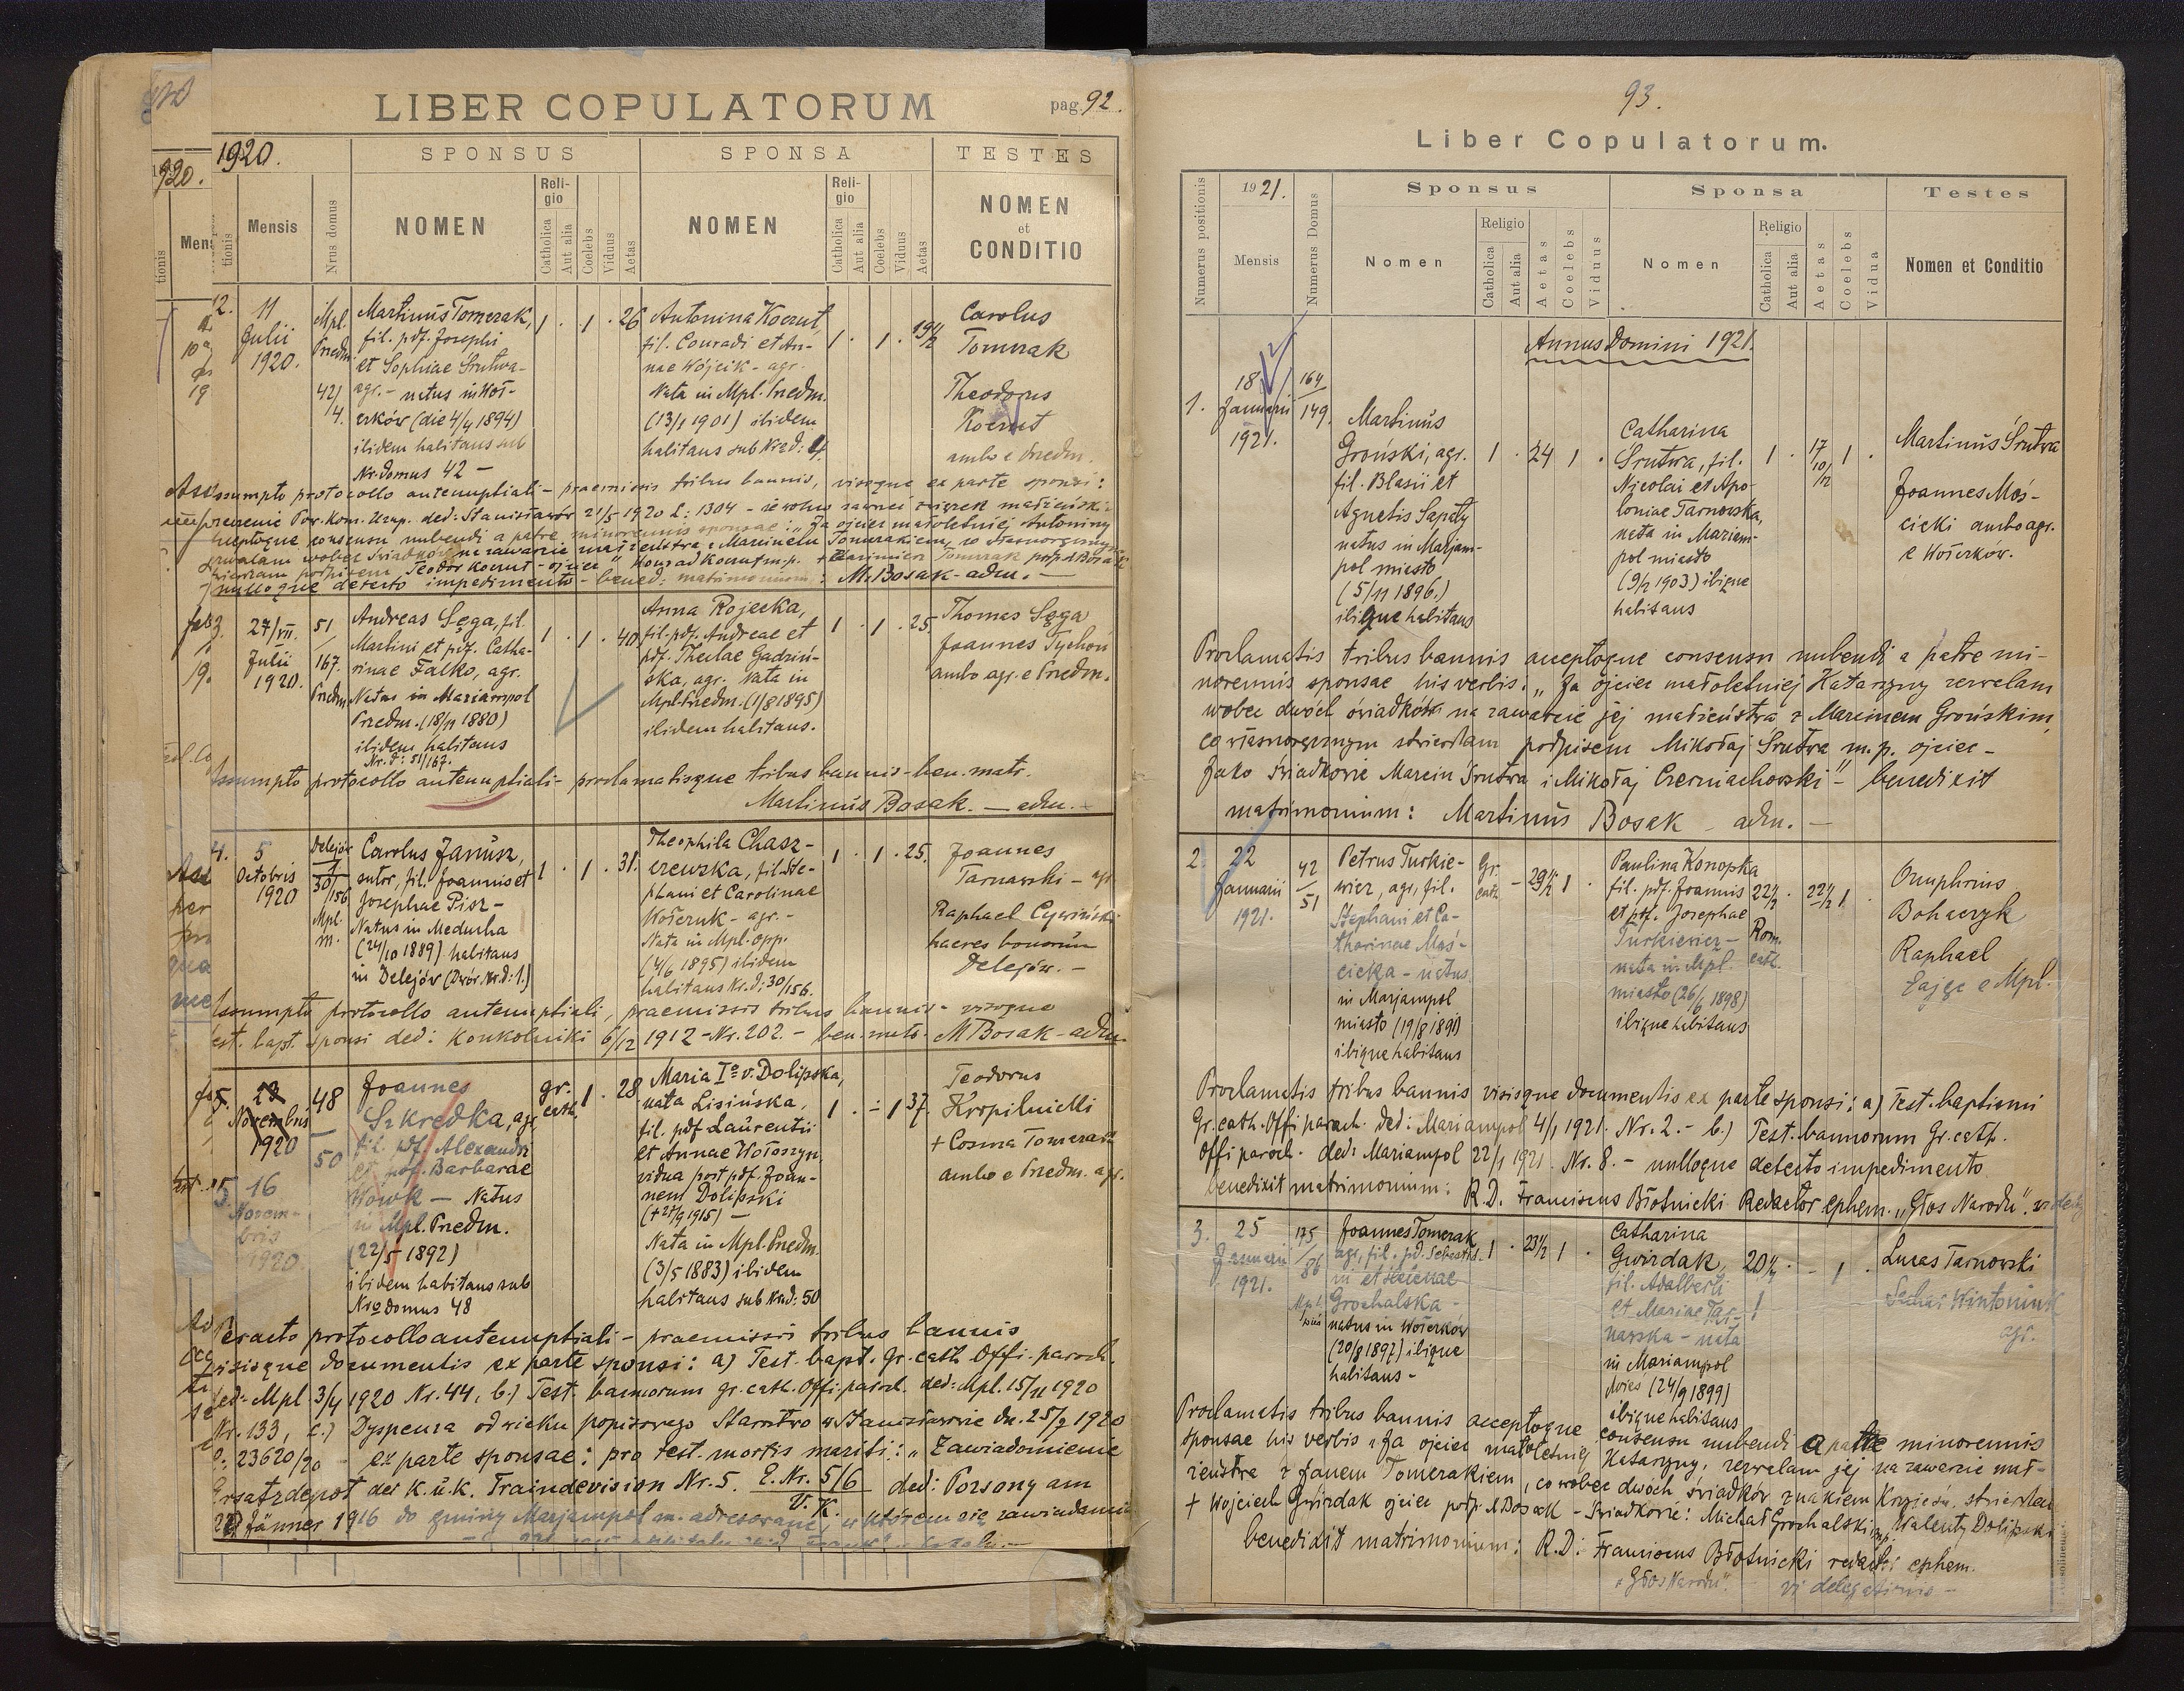 LIBER COPULATORUM
pag. 92.
1920.
920.
SPONSUS
SPONSA
TESTES
Mensis
Nrus domus
NOMEN
Religio
Catholica
Aut alia
Coelebs
Viduus
Aetas
NOMEN
Religio
Catholica
Aut alia
Coelebs
Viduus
Aetas
NOMEN
et
CONDITIO
12.
11
Julii
1920.
Mpl.
Przedm.
42/
4.
Martinus Tomerak,
fil. pdf. Josephi
et Sophiae Srutwa-
agr. - natus in Woł-
erków (die 4/4 1894)
ibidem habitans sub
Nr. domus 42 -
1 . 1 . 26
Antonina Koczut,
fil. Conradi et An-
nae Wójcik - agr.
Nata in Mpl. Przedm.
(13/1 1901) ibidem
habitans sub Nr. d: 4.
1 . 1 . 19 1/2
Carolus
Tomerak
Theodorus
Koczut
ambo e Przedm.
Assumpto protocollo antenuptiali - praemissis tribus bannis, visoque ex parte sponsi:
Pow. Kom. Uzup. ded: Stanisławów 21/5 1920 L: 1304 -
consensu nubendi a patre minorennis sponsae: "Ja ojciec małoletniej Antoniny
zezwalam wobec świadków na zawarcie małżeństwa z Marcinem Tomerakiem, co własnoręcznym
stwierdzam podpisem Teodor Koczut - ojciec " Konrad Koczut m.p. + Kazimierz Tomerak podp. M Bosak
nulloque detecto impedimento - bened: matrimonium: M. Bosak - adm. -
3.
27/VII.
Julii
1920.
51
167.
Przedm
Andreas Sęga, fil.
Martini et pdf. Catha-
rinae Falko, agr.
Natus in Mariampol
Przedm. (18/11 1880)
ibidem habitans
Nr. d: 51/167.
1 . 1 . 40
Anna Rojecka,
fil. pdf. Andreae et
pdf. Theclae Gadziń-
ska, agr. Nata in
Mpl. Przedm. (1/8 1895)
ibidem habitans.
1 . 1 . 25.
Thomas Sęga
Joannes Tychoń
ambo agr. e Przedm.
Assumpto protocollo antenuptiali - proclamatisque tribus bannis - ben. matr.
Martinus Bosak. - adm. -
4.
5
Octobris
1920
Delejów
1
30/156
Mpl.
m.
Carolus Janusz,
sutor, fil. Joannis et
Josephae Pisz-
Natus in Meducha
(24/10 1889) habitans
in Delejów (Dwór Nr. d: 1.)
1 . 1 . 31.
Theophila Chasz-
czewska, fil. Ste-
phani et Carolinae
Wołczuk - agr. -
Nata in Mpl. opp.
(4/6 1895) ibidem
habitans Nr. d: 30/156.
1 . 1 . 25.
Joannes
Tarnawski - agr
Raphael Cywiński
haeres bonorum
Delejów. -
Assumpto protocollo antenuptiali, praemissis tribus bannis - visoque
test. bapt. sponsi ded: Konkolniki 6/12 1912 - Nr. 202. - ben. matr. - M Bosak - adm.
5.
Novembris
1920
5. 16
Novem-
bris
1920
48
50
Joannes
Szkredka, agr
fil. pdf. Alexandri
et pdf. Barbarae
Wowk - Natus
in Mpl. Przedm.
(22/5 1892)
ibidem habitans sub
Nro domus 48
gr.
cath.
1 . 28
Maria Iº v. Dolipska,
nata Lisińska,
fil. pdf Laurentii
et Annae Wołoszyn,
vidua post pdf. Joan-
nem Dolipski
(+27/9 1915) -
Nata in Mpl. Przedm.
(3/5 1883) ibidem
habitans sub Nr. d: 50
1 . - 1 37.
Teodorus
Kropilnicki
+ Cosma Tomerak
ambo e Przedm. agr.
Peracto protocollo antenuptiali - praemissis tribus bannis
visisque documentis ex parte sponsi: a) Test. bapt. Gr. cath. Offi. paroch.
ded: Mpl 3/4 1920 Nr. 44, b.) Test. bannorum gr. cath. Offi. paroch. ded: Mpl. 15/11 1920
Nr. 133, c.) Dyspenza od wieku popisowego Starostwo w Stanisławowie dn. 25/9 1920
L: 23620/20 - ex parte sponsae: pro test. mortis mariti: "Zawiadomienie
Ersatzdepot der K. u. K. Traindevision Nr. 5. E. Nr. 516 ded: Porsony am
V. K.
Jänner 1916 do gminy Marjampol m. adresowane, w którem się zawiadamia
93.
Liber Copulatorum.
Numerus positionis
1921.
Mensis
Numerus Domus
Sponsus
Nomen
Religio
Catholica
Aut alia
Aetas
Coelebs
Viduus
Sponsa
Nomen
Religio
Catholica
Aut alia
Aetas
Coelebs
Vidua
Testes
Nomen et Conditio
Annus Domini 1921.
1.
18
Januarii
1921.
164
149.
Martinus
Groński, agr.
fil. Blasii et
Agnetis Sapaty
natus in Marjam-
pol miasto
(5/11 1896.)
ibique habitans
1 . 24 1 .
Catharina
Srutwa, fil.
Nicolai et Apo-
loniae Tarnowska,
nata in Mariam-
pol miasto
(9/2 1903) ibique
habitans
1 . 17 10/12 1 .
Martinus Srutwa
Joannes Moś-
cicki ambo agr.
e Wołerków.
Proclamatis tribus bannis acceptoque consensu nubendi a patre mi-
norennis sponsae his verbis: "Ja ojciec małoletniej Katarzyny zezwalam
wobec dwóch świadków na zawarcie jej małżeństwa z Marcinem Grońskim,
co własnoręcznym stwierdzam podpisem Mikołaj Srutwa m.p. ojciec -
Jako świadkowie Marcin Srutwa i Mikołaj Czerniachowski" - benedixit
matrimonium: Martinus Bosak - adm. -
2.
22
Januarii
1921.
42
51
Petrus Turkie-
wicz, agr, fil.
Stephani et Ca-
tharinae Moś-
cicka - natus
in Marjampol
miasto (19/8 1891)
ibique habitans
Gr.
cath.
- 29 1/2 1 .
Paulina Konopka
fil. pdf. Joannis
et pdf. Josephae
Turkiewicz -
nata in Mpl.
miasto (26/6 1898)
ibique habitans
22 1/2
Rom.
cath.
22 1/2 1 .
Onuphrius
Bohaczyk
Raphael
Zając e Mpl.
Proclamatis tribus bannis visisque documentis ex parte sponsi: a) Test. baptismi
Gr. cath. Offi paroch. ded: Mariampol 4/1 1921. Nr. 2. - b.) Test. bannorum Gr. cath.
Offi paroch. ded: Mariampol 22/1 1921. Nr. 8. - nulloque detecto impedimento
benedixit matrimonium: R.D. Franciscus Błotnicki Redactor ephem. "Głos Narodu".
3.
25
Januarii
1921.
175
/86
Mpl.
Joannes Tomerak
agr, fil. pd. Sebasti-
ni et Helenae
Grochalska -
natus in Wołerków
(20/8 1897) ibique
habitans -
1 . 23 1/2 1 .
Catharina
Gwirdak,
fil. Adalberti
et Mariae Tar-
nawska - nata
in Mariampol
wieś (24/9 1899)
ibique habitans
20 1/2 . - 1 .
Lucas Tarnowski
Wintoniuk
agr.
Proclamatis tribus bannis acceptoque consensu nubendi a patre minorennis
sponsae his verbis "Ja ojciec małoletniej Katarzyny, zezwalam jej na zawarcie mał-
żeństwa z Janem Tomerakiem, co wobec dwóch świadków znakiem Krzyża stwierdzam
+ Wojciech Gwirdak ojciec podp. M Bosak - Świadkowie: Michał Grochalski mp, Walenty Dolipski
benedixit matrimonium: R.D: Franciscus Błotnicki redactor ephem.
"Głos Narodu". - vi delegationis -